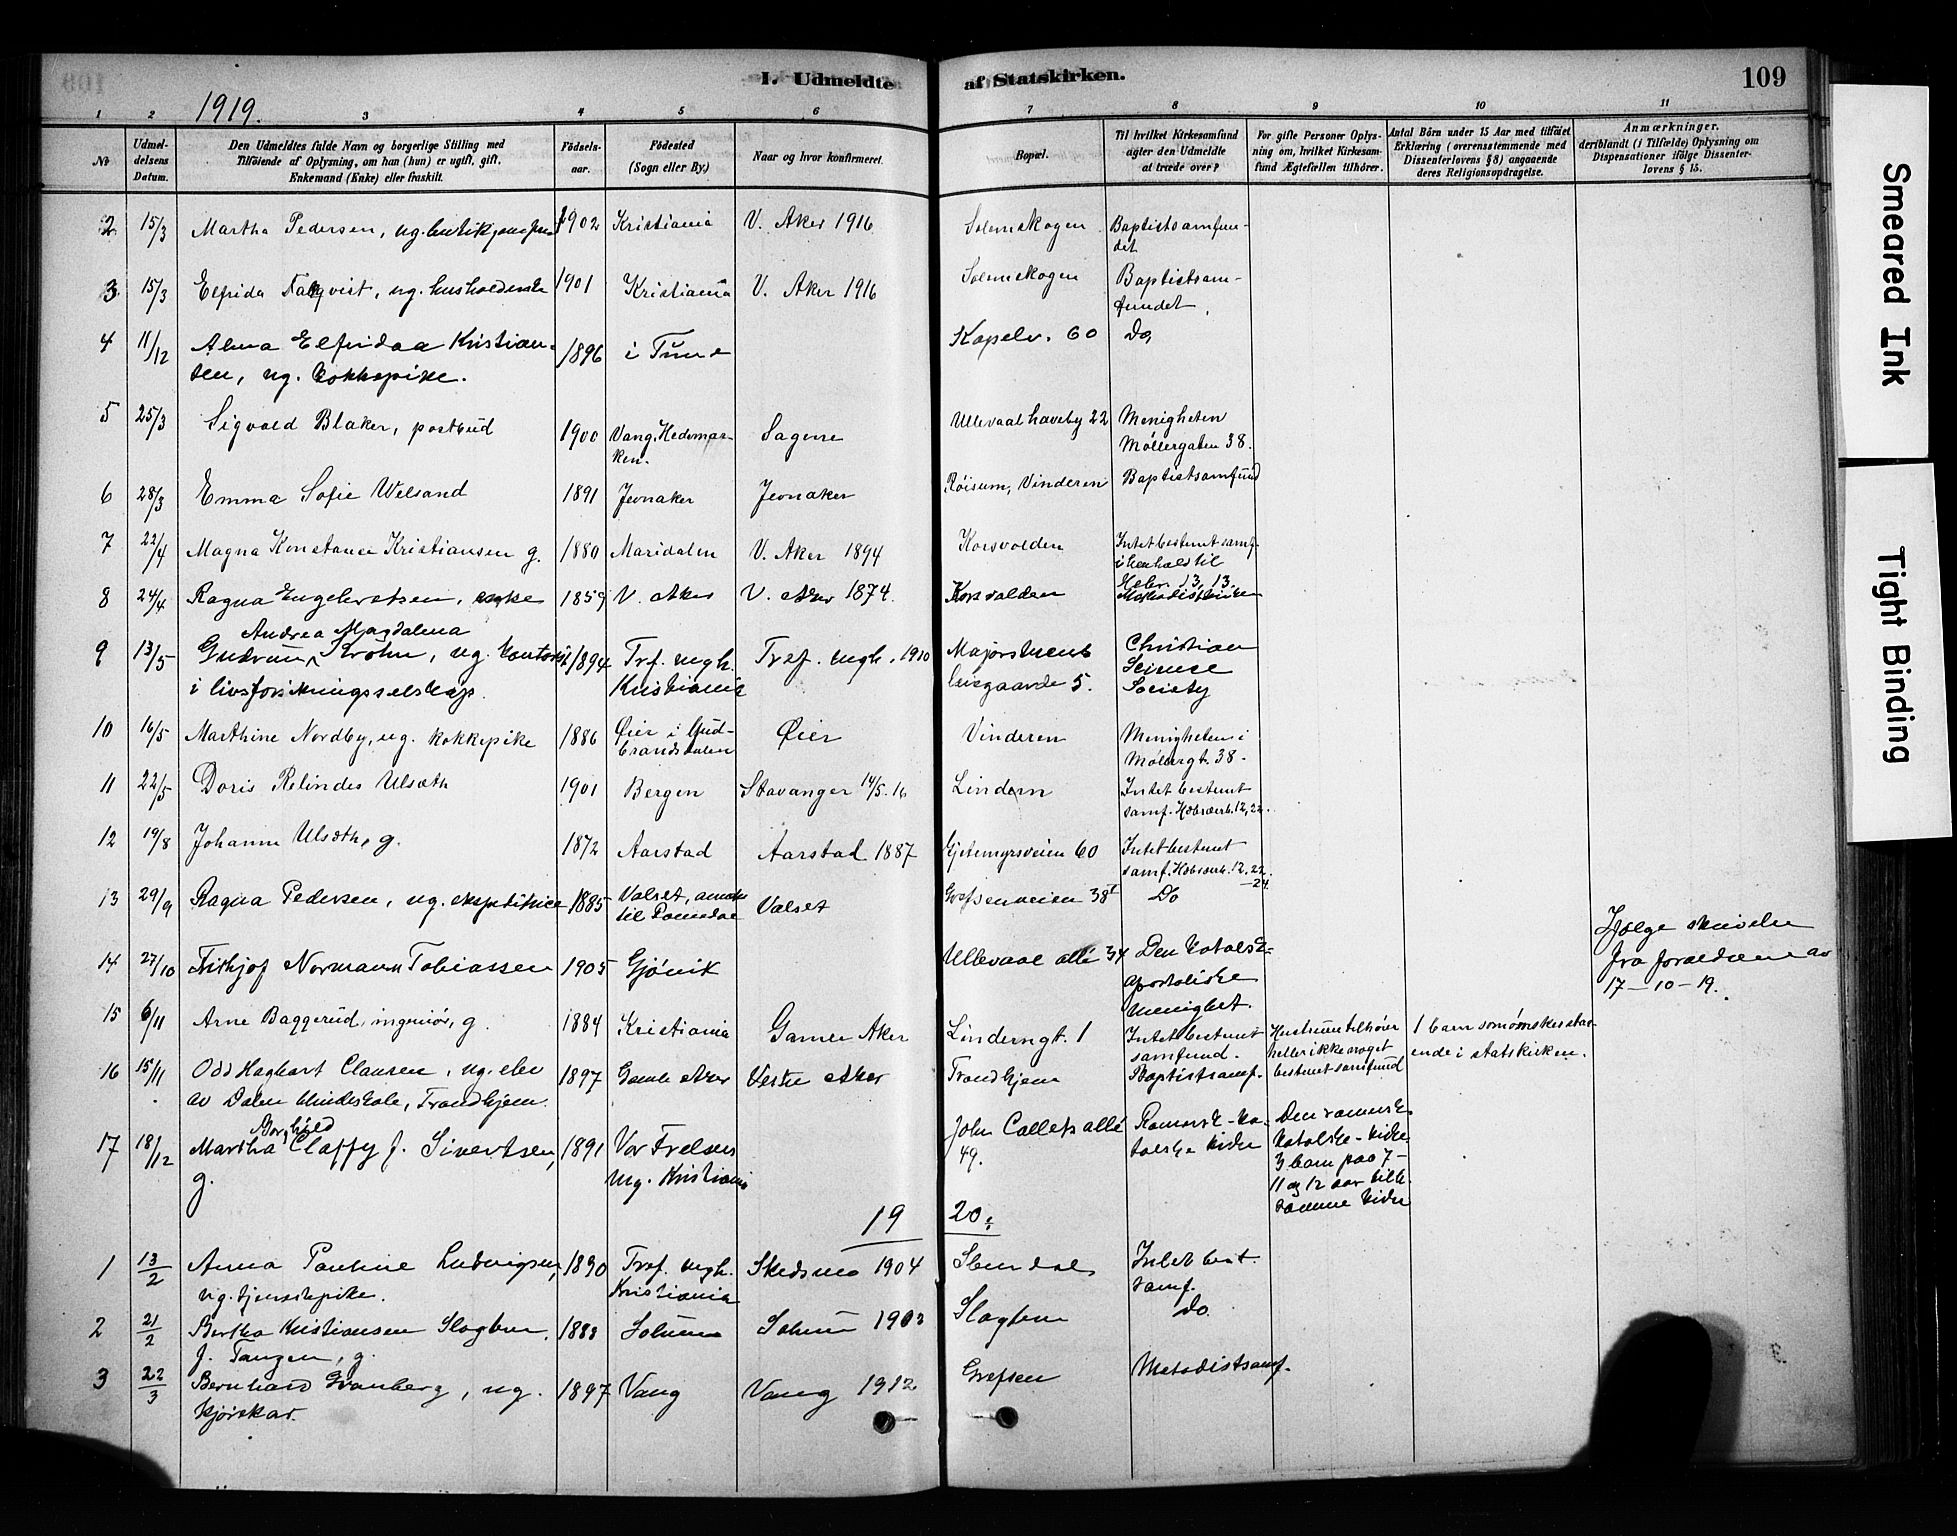 I. Udmeldte af Statskirken. 109
1919.
1 2 3 4 5 6 7 8 9 10 11
No
Udmeldelsens Datum.
Den Udmeldtes fulde Navn og borgerlige Stilling med
Tilföiende af Oplysning, om han (hun) er ugift, gift.
Enkemand (Enke) eller fraskilt.
Födsels-
aar.
Födested
(Sogn eller By.)
Naar og hvor konfirmeret.
Bopæl.
Til hvilket Kirkesamfund
agter den Udmeldte
at træde over?
For gifte Personer Oplys-
ning om, hvilket Kirkesam-
fund Ægtefællen tilhörer.
Antal Börn under 15 Aar med tilföiet
Erklæring (overensstemmende med
Dissenterlovens § 8) angaaende
deres Religionsopdragelse.
Anmærkninger.
deriblandt (i Tilfælde) Oplysning om
Dispensationer ifölge Dissenter-
lovens § 15.
2 15/3 Martha Pedersen, ug. 1902 Kristiania V. Aker 1916 Solemskogen Baptistsamfun-
det
3 15/3 Elfrida ug. 1901 Kristiania V. Aker 1916 Solemskogen Baptistsam-
fundet.
4 11/12 Alma Elfridaa Kristian-
sen, ug. kokkepike. 1896 i Tune Kapelv. 60 Do,
5 25/3 Sigvald Blaker, postbud 1900 Vang, Hedemar-
ken. Sagene Ullevaal haveby 22 Menigheten
Møllergaten 38.
6 28/3 Emma Sofie Welsand 1891 Jevnaker Jevnaker Röisum, Vinderen Baptistsamfund
7 22/4 Magna Konstanse Kristiansen g. 1880 Maridalen V. Aker 1894 Korsvolden Intet bestemt samf.
i henhold til
Hebr. 13, 13.
8 24/4 Ragna Engebretsen, enke 1859 V. Aker V. Aker 1874. Korsvolden Metodistkirken
Andrea Magdalena
9 13/5 Gudrun Krohn, ug. kontorist 1894 Trf. mgh. Tref. mgh. 1910 Majorstuens Christian
i livsforsikringsselskap. Kristiania 5. Science
Society
10 16/5 Marthine Nordby, ug. kokkepike 1886 Øier i Gud-
brandsdalen Øier Vinderen Menigheten i
Møllergt. 38.
11 22/5 Doris Relindes Ulsæth 1901 Bergen Stavanger 14/5. 16 Lindern Intet bestemt
samf. Hebræerb. 12, 22.
12 19/8 Johanne Ulsæth, g. 1872 Aarstad Aarstad 1887 Gjetemyrsveien 60 Intet bestemt
samf. Hebræerb. 12, 22
-24
13 29/9 Ragna Pedersen, ug. ekspeditrice 1885 Valset, anneks
til Valset Grefsenveien 38 I Do
14 27/10 Frithjof Normann Tobiassen 1905 Gjövik Ullevaal allé 34 Den katolsk-
apostoliske
menighet. Ifølge skrivelse
fra forældrene av
17-10-19.
15 6/11 Arne Baggerud, ingeniør, g. 1884 Kristiania Gamle Aker Linderngt. 1 Intet bestemt
samfund. Hustruen tilhører
heller ikke noget
bestemt samfund 1 barn som ønskes staa-
ende i statskirken.
16 15/11 Odd Hagbart Clausen, ug. elev
av Dalen Trondhjem. 1897 Gamle Aker Vestre Aker Trondhjem Baptistsamf.
Borghild
17 18/12 Martha Claffy f. Sivertsen,
g. 1891 Vor Frelsers
mg. Kristiania John Colletts allé
49. Romersk-ka-
tolske kirke Den romersk-
katolske-kirke
3 barn paa 7-
11 og 12 aar tilh.
samme kirke
19 20.
1 13/2 Anna Pauline Ludvigsen,
ug. tjenestepike. 1890 Tref. mgh.
Kristiania Skedsmo 1904 Intet best.
samf.
2 21/2 Bertha Kristiansen Slagtern,
f. Tangen, g. 1883 Solum Solum 1903 Slagtern do.
3 22/3 Bernhard Granberg, ug.
kjørskar. 1897 Vang Vang 1912 Grefsen Metodistsamf.
Smeared Ink
Tight Binding